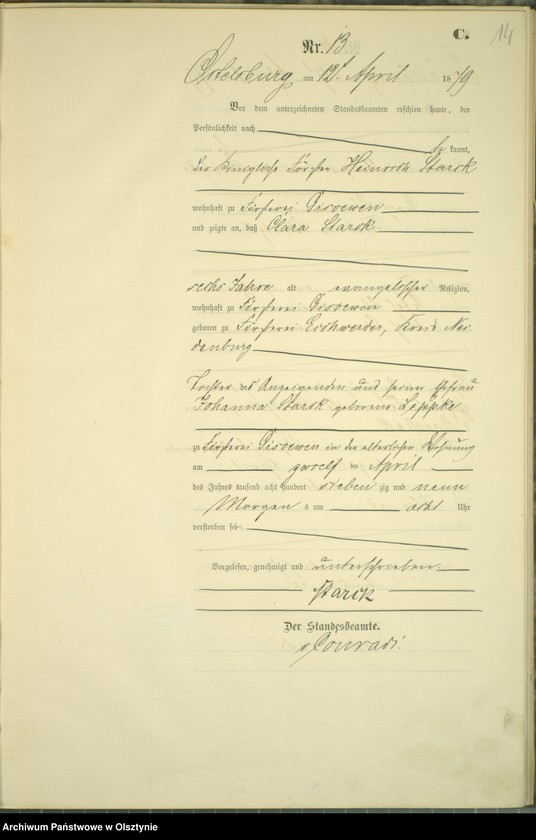 C.
14
Nr. 13.
Ortelsburg am 12t April 1879
Vor dem unterzeichneten Standesbeamten erschien heute, der
Persönlichkeit nach
be kannt,
der Königliche Förster Heinrich Starck
wohnhaft zu Försterei
und zeigte an, daß Clara Starck
sechs Jahre alt evangelischer Religion,
wohnhaft zu Försterei
geboren zu Försterei Eichwerder, Kreis Nei
denburg
Tochter des Anzeigenden und seiner Ehefrau
Johanna Starck geborene Leppke
zu Försterei in der elterlichen Wohnung
am zwoelf ten April
des Jahres tausend acht hundert sieben zig und neun
Morgen s um acht Uhr
verstorben sei
Vorgelesen, genehmigt und unterschrieben
Starck
Der Standesbeamte.
v Conradi.
Archiwum Państwowe w Olsztynie